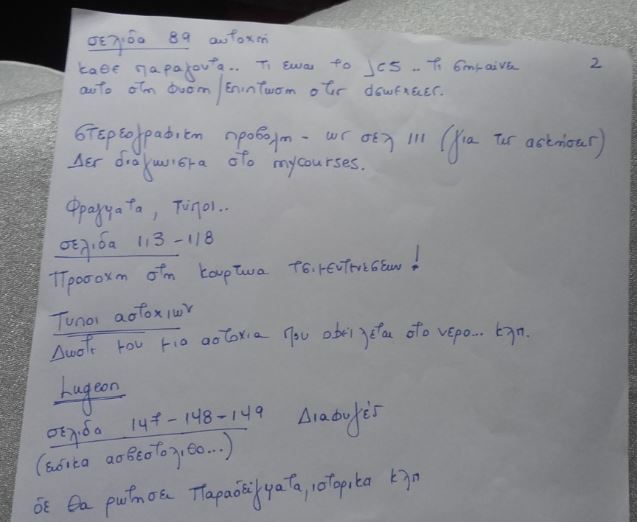 σελιδα 89 αντοχή
καθε παραγοντα.. τι ειναι το JCS.. τι σημαινει 2
αυτο στη φυση/επιπτωση στις ασυνεχειες.
στερεογραφικη προβολη - ως σελ 111 (για τις ασκήσεις)
Δες διαγωνισμα στο mycourses.
Φραγματα, τυποι..
σελιδα 113-118
Προσοχη στη κουρτινα τσιμεντενεσεων!
Τυποι αστοχιων
Δωστε μου μια αστοχια που οφειλεται στο νερο... κλπ.
Lugeon
σελιδα 147-148-149 Διαφυγές
(ειδικα ασβεστολιθο...)
δε θα ρωτησει παραδειγματα, ιστορικα κλπ